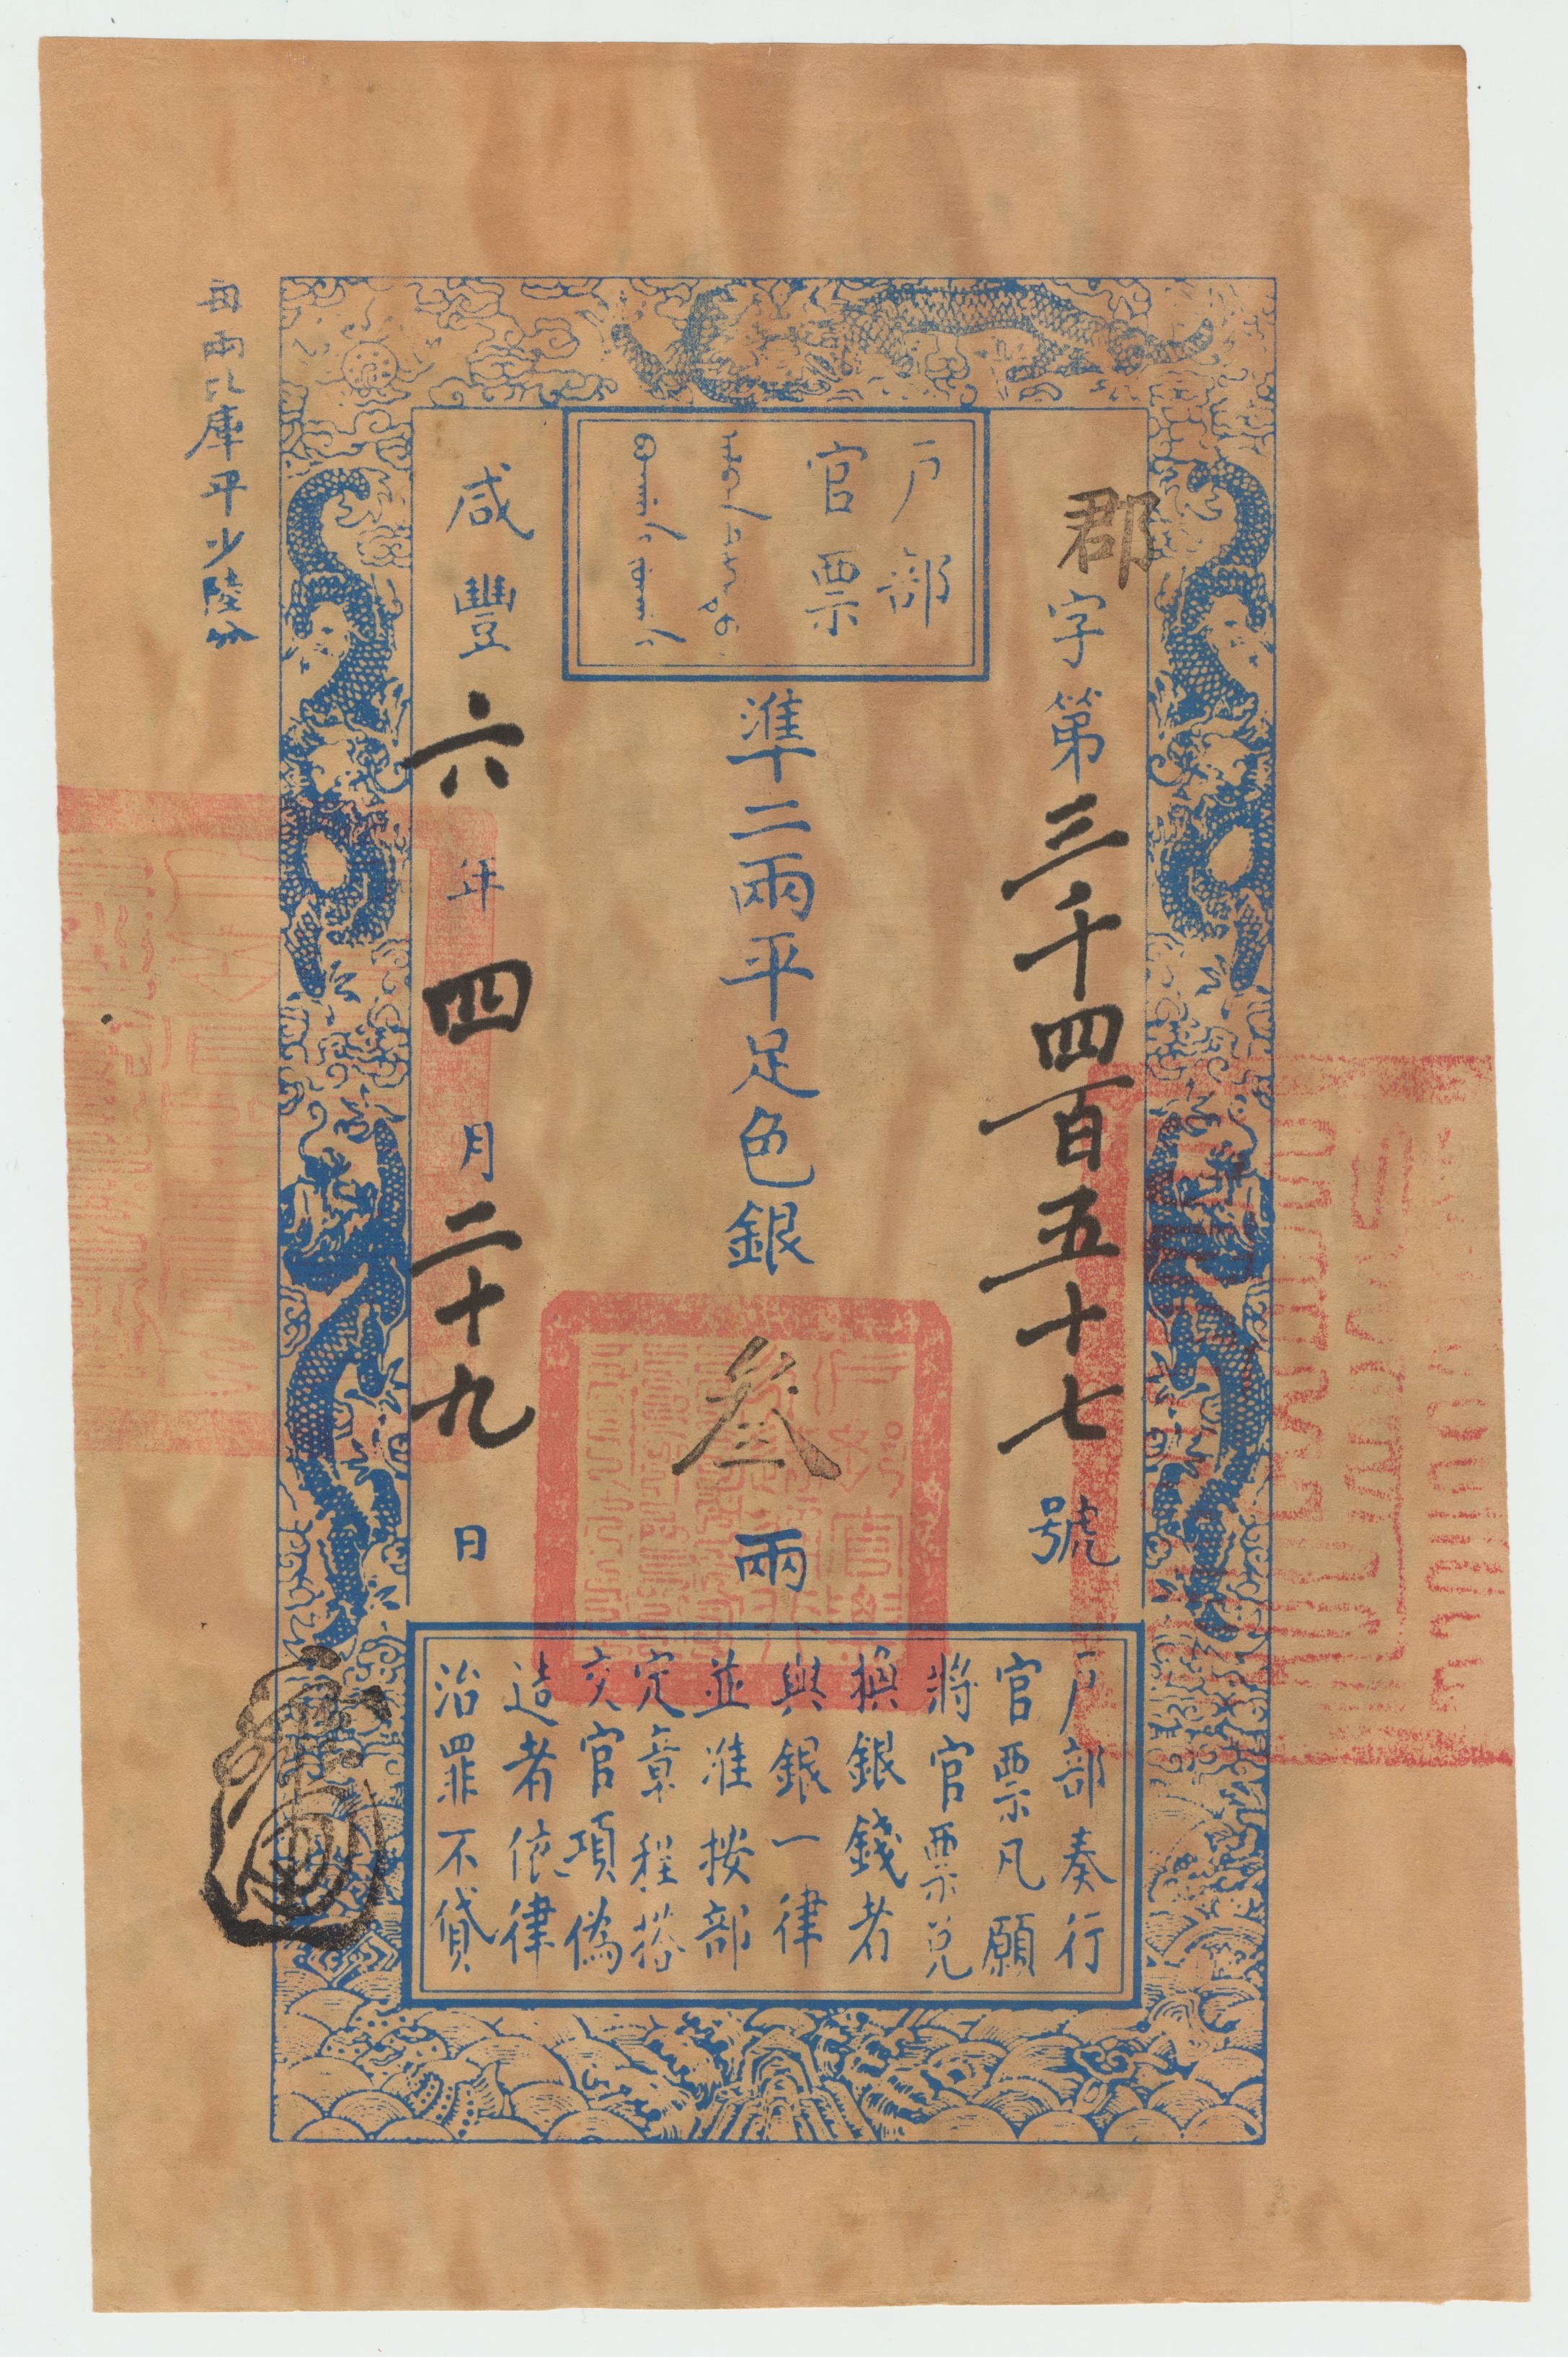 郡字第三千四百五十七號
戶部
官票
準二兩平足色銀叁兩
咸豐六年四月二十九日
每兩比庫平少陸分
戶部奏行
官票凡願
將官票兌
換銀錢者
與銀一律
並准按部
定章程搭
交官項偽
造者依律
治罪不貸